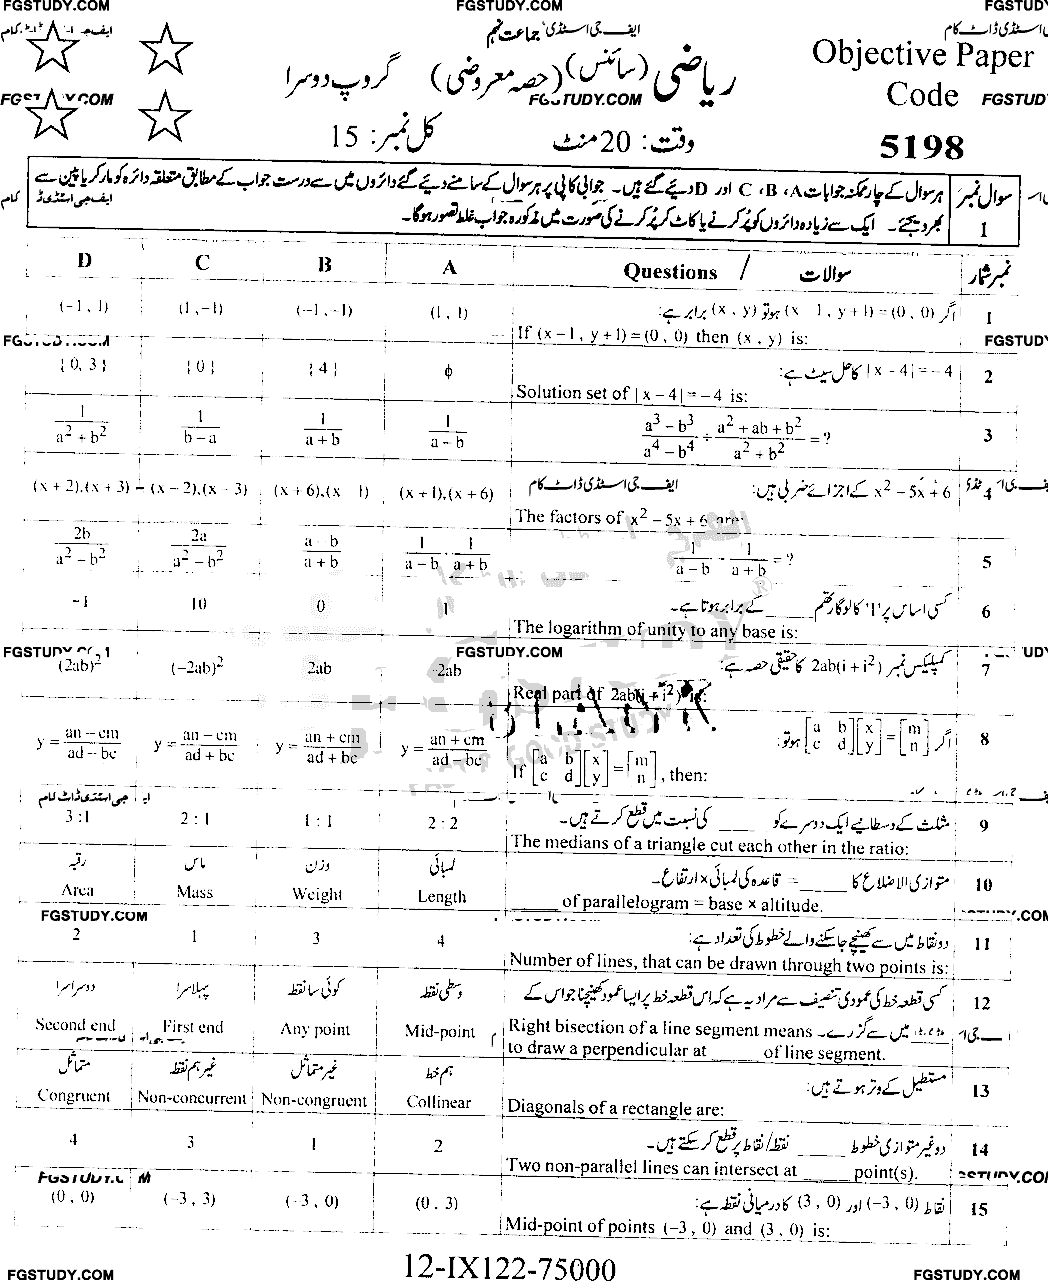 FGSTUDY.COM FGSTUDY.COM FGSTUDY.COM
ایف جی اسٹڈی جماعت نہم
Objective Paper
Code
5198
ریاضی (سائنس) (حصہ معروضی) گروپ دوسرا
FGSTUDY.COM
وقت: 20 منٹ کل نمبر: 15
سوال نمبر 1
ہر سوال کے چار ممکنہ جوابات A، B، C اور D دیئے گئے ہیں۔ جوابی کاپی پر ہر سوال کے سامنے دیئے گئے دائروں میں سے درست جواب کے مطابق متعلقہ دائرہ کو مارکر یا پین سے
بھر دیجئے۔ ایک سے زیادہ دائروں کو پُر کرنے یا کاٹ کر پُر کرنے کی صورت میں مذکورہ جواب غلط تصور ہوگا۔
D C B A Questions / سوالات نمبر شمار
(−1, 1) (1, −1) (−1, −1) (1, 1) اگر (x − 1, y + 1) = (0, 0) ہو تو (x, y) برابر ہے: 1
If (x−1, y+1)=(0, 0) then (x, y) is:
{0, 3} {0} {4} ϕ |x − 4| = −4 کا حل سیٹ ہے: 2
Solution set of |x − 4| = −4 is:
1/(a²+b²) 1/(b−a) 1/(a+b) 1/(a−b) (a³−b³)/(a⁴−b⁴) ÷ (a²+ab+b²)/(a²+b²) = ? 3
(x+2),(x+3) (x−2),(x−3) (x+6),(x−1) (x+1),(x+6) x² − 5x + 6 کے اجزائے ضربی ہیں: 4
The factors of x² − 5x + 6 are:
2b/(a²−b²) 2a/(a²−b²) (a−b)/(a+b) 1/(a−b) 1/(a+b) 1/(a−b) − 1/(a+b) = ? 5
−1 10 0 1 کسی اساس پر '1' کا لوگارتھم ____ کے برابر ہوتا ہے۔ 6
The logarithm of unity to any base is:
FGSTUDY.COM
(2ab)² (−2ab)² 2ab -2ab کمپلیکس نمبر 2ab(i + i²) کا حقیقی حصہ ہے: 7
Real part of 2ab(i + i²) is:
y = (an−cm)/(ad−bc) y = (an−cm)/(ad+bc) y = (an+cm)/(ad+bc) y = (an+cm)/(ad−bc) اگر [a b; c d][x; y] = [m; n] ہو تو: 8
If [a b; c d][x; y] = [m; n], then:
3 : 1 2 : 1 1 : 1 2 : 2 مثلث کے وسطانیے ایک دوسرے کو ____ کی نسبت میں قطع کرتے ہیں۔ 9
The medians of a triangle cut each other in the ratio:
رقبہ ماس وزن لمبائی متوازی الاضلاع کا ____ = قاعدہ کی لمبائی × ارتفاع۔ 10
Area Mass Weight Length ____ of parallelogram = base × altitude.
FGSTUDY.COM
2 1 3 4 دو نقاط میں سے کھینچے جا سکنے والے خطوط کی تعداد ہے: 11
Number of lines, that can be drawn through two points is:
دوسرا سرا پہلا سرا کوئی سا نقطہ وسطی نقطہ کسی قطعہ خط کی عمودی تنصیف سے مراد یہ ہے کہ اس قطعہ خط پر ایسا عمود کھینچنا جو اس کے 12
میں سے گزرے۔
Second end First end Any point Mid-point Right bisection of a line segment means
to draw a perpendicular at ____ of line segment.
متماثل غیر ہم نقطہ غیر متماثل ہم خط مستطیل کے وتر ہوتے ہیں: 13
Congruent Non-concurrent Non-congruent Collinear Diagonals of a rectangle are:
4 3 1 2 دو غیر متوازی خطوط ____ نقطہ/نقاط پر قطع کر سکتے ہیں۔ 14
Two non-parallel lines can intersect at ____ point(s).
(0, 0) (−3, 3) (−3, 0) (0, 3) نقاط (−3, 0) اور (3, 0) کا درمیانی نقطہ ہے: 15
Mid-point of points (−3, 0) and (3, 0) is:
12-IX122-75000
FGSTUDY.COM FGSTUDY.COM FGSTUDY.COM